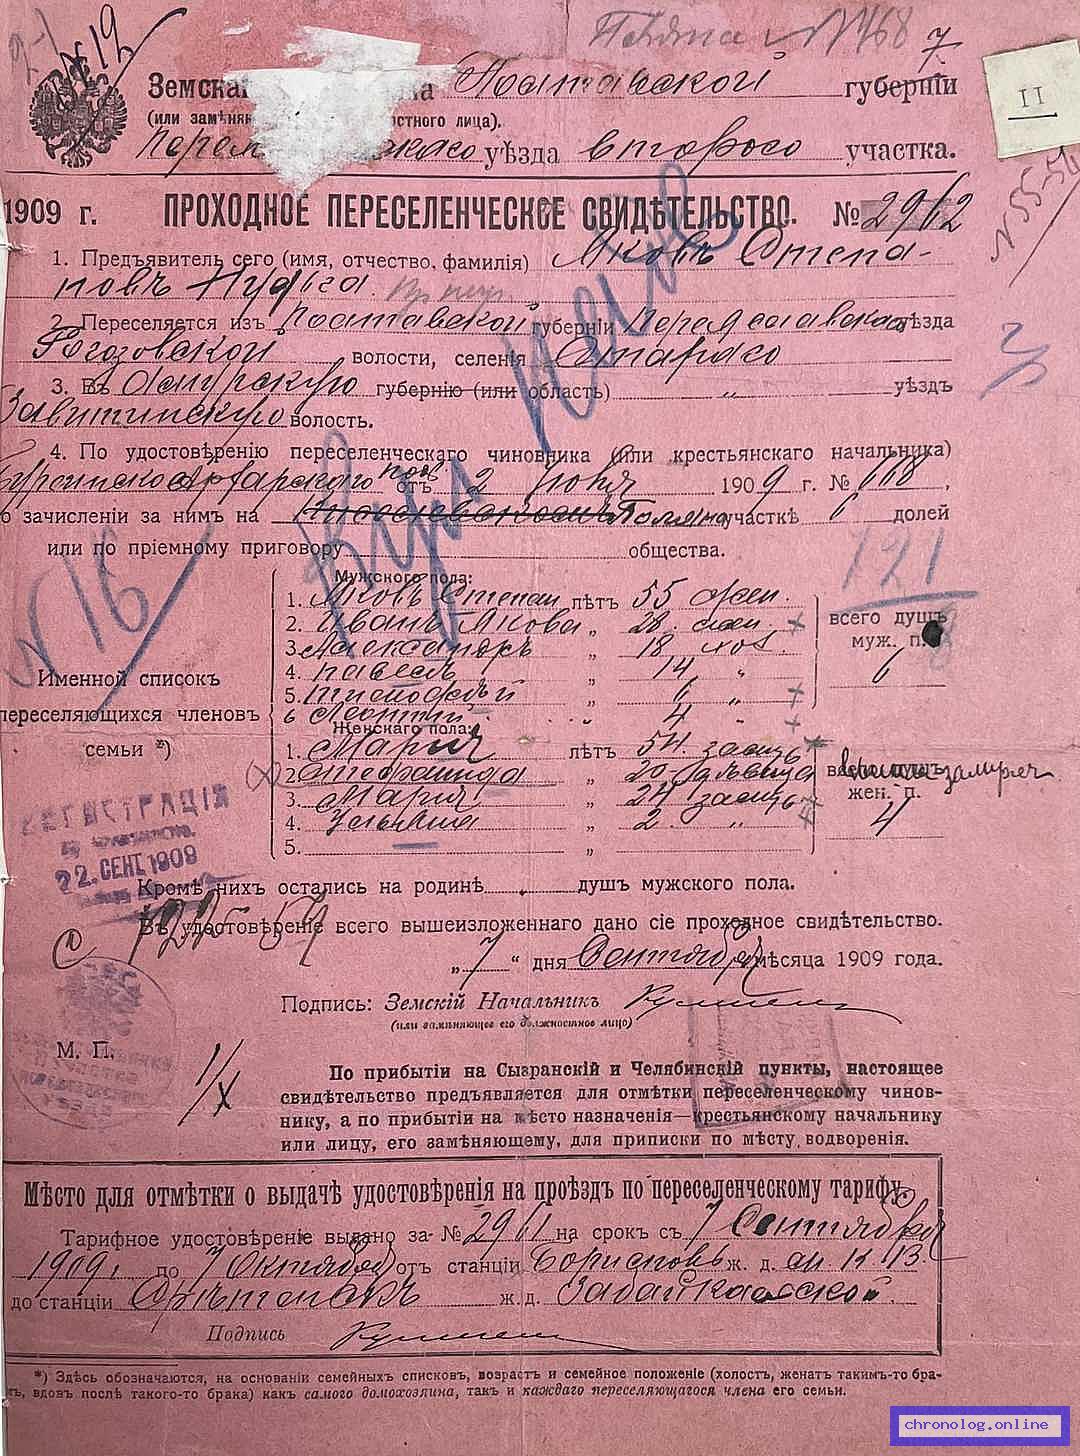 № 12
№ 1468
7
Земска ка Полтавской губерніи
(или замѣня остного лица).
Перея скаго уѣзда второго участка.
II
№ 55-56
1909 г. ПРОХОДНОЕ ПЕРЕСЕЛЕНЧЕСКОЕ СВИДѢТЕЛЬСТВО. № 2962
1. Предъявитель сего (имя, отчество, фамилія) Яковъ Степа-
новъ
2. Переселяется изъ Полтавской губерніи Переяславскаго уѣзда
Рогозовской волости, селенія Стараго
3. Въ Амурскую губернію (или область) „ уѣздъ
Завитинскую волость.
4. По удостовѣренію переселенческаго чиновника (или крестьянскаго начальника)
отъ 2 Іюня 1909 г. № 668,
о зачисленіи за нимъ на участкѣ 6 долей
или по пріемному приговору общества.
№ 16
121
Мужского пола:
1. Яковъ Степан лѣтъ 55 жен.
2. Иванъ Яковл „ 28. жен.
3. Александръ „ 18 хол.
4. Павелъ „ 14 „
5. Тимофей „ 6 „
6 Леонтій „ 4 „
всего душъ
муж. п.
6
Именной списокъ
переселяющихся членовъ
семьи *)
Женскаго пола:
1. Марія лѣтъ 54. замуж
2. Степанида „ 20 дѣвица
3. Марія „ 24 замуж
4. Ульяна „ 2. „
5. „
всего душъ
жен. п.
4
РЕГИСТРАЦІЯ
22. СЕНТ. 1909
Кромѣ нихъ остались на родинѣ душъ мужского пола.
Въ удостовѣреніе всего вышеизложеннаго дано сіе проходное свидѣтельство.
„ 7 “ дня Сентября мѣсяца 1909 года.
Подпись: Земскій Начальникъ
(или замѣняющее его должностное лицо)
М. П.
1/X
По прибытіи на Сызранскій и Челябинскій пункты, настоящее
свидѣтельство предъявляется для отмѣтки переселенческому чинов-
нику, а по прибытіи на мѣсто назначенія—крестьянскому начальнику
или лицу, его замѣняющему, для приписки по мѣсту водворенія.
Мѣсто для отмѣтки о выдачѣ удостовѣренія на проѣздъ по переселенческому тарифу.
Тарифное удостовѣреніе выдано за № 2961 на срокъ съ 7 Сентября
1909 г до 7 Октября отъ станціи Борисполь ж. д.
до станціи Срѣтенскъ ж. д. Забайкальской.
Подпись
*) Здѣсь обозначаются, на основаніи семейныхъ списковъ, возрастъ и семейное положеніе (холостъ, женатъ такимъ-то бра-
къ, вдовъ послѣ такого-то брака) какъ самого домохозяина, такъ и каждаго переселяющагося члена его семьи.
chronolog.online